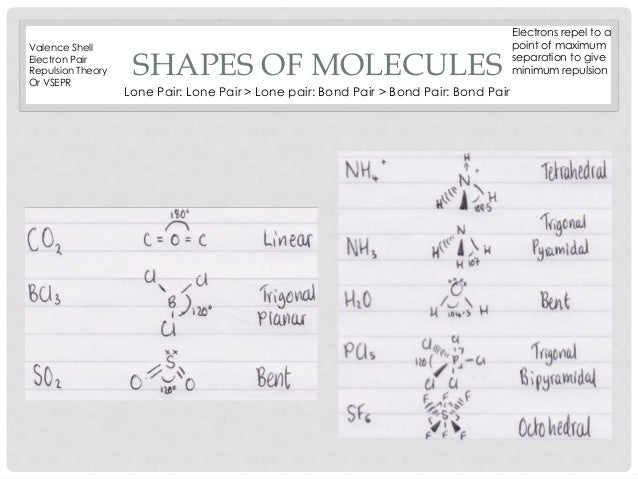 Valence Shell
Electron Pair
Repulsion Theory
Or VSEPR
SHAPES OF MOLECULES
Electrons repel to a
point of maximum
separation to give
minimum repulsion
Lone Pair: Lone Pair > Lone pair: Bond Pair > Bond Pair: Bond Pair
180°
CO₂ C = O = C Linear
Cl Cl
BCl₃ B 120° Trigonal
Cl Planar
xx
SO₂ O S O Bent
120°
H
NH₄⁺ N Tetrahedral
H H
xx Trigonal
NH₃ N Pyramidal
H H H 107
xx xx
H₂O O Bent
H 104.5 H
PCl₅ Cl Cl Trigonal
120 P Cl Bipyramidal
Cl Cl
F F F
SF₆ S Octohedral
F F F